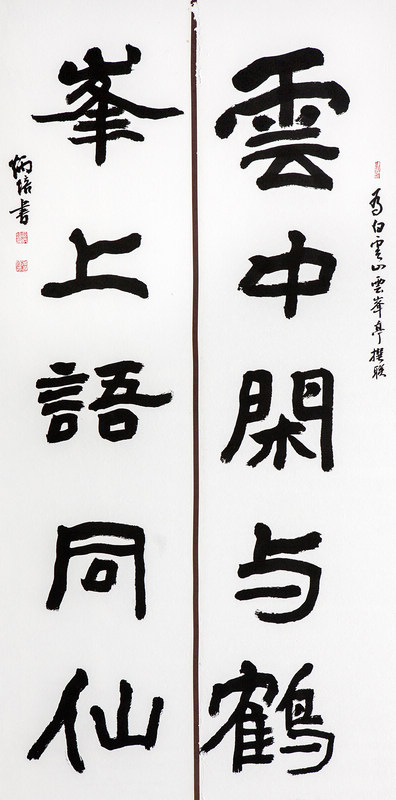 为白雲山雲峯亭撰联
雲中閑与鶴
峯上語同仙
炳培書